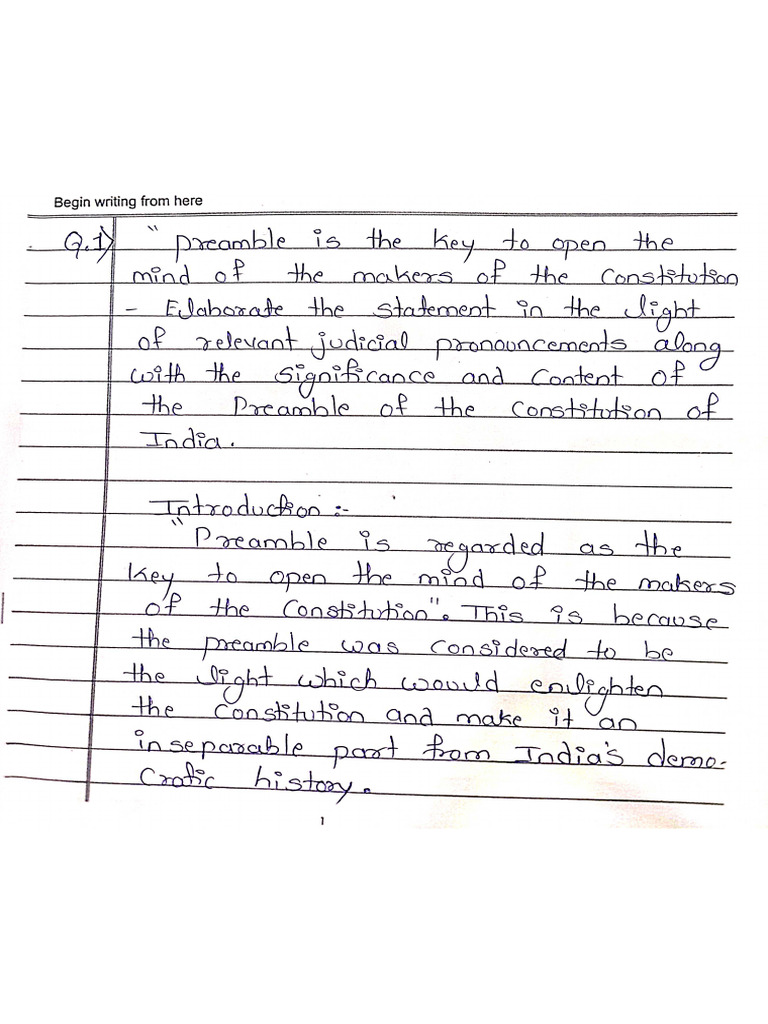 Begin writing from here
Q.1) " Preamble is the key to open the
mind of the makers of the Constitution
- Elaborate the statement in the light
of relevant judicial pronouncements along
with the significance and content of
the Preamble of the Constitution of
India.
Introduction :-
"Preamble is regarded as the
key to open the mind of the makers
of the Constitution". This is because
the preamble was considered to be
the light which would enlighten
the constitution and make it an
inseparable part from India's demo-
cratic history.
1